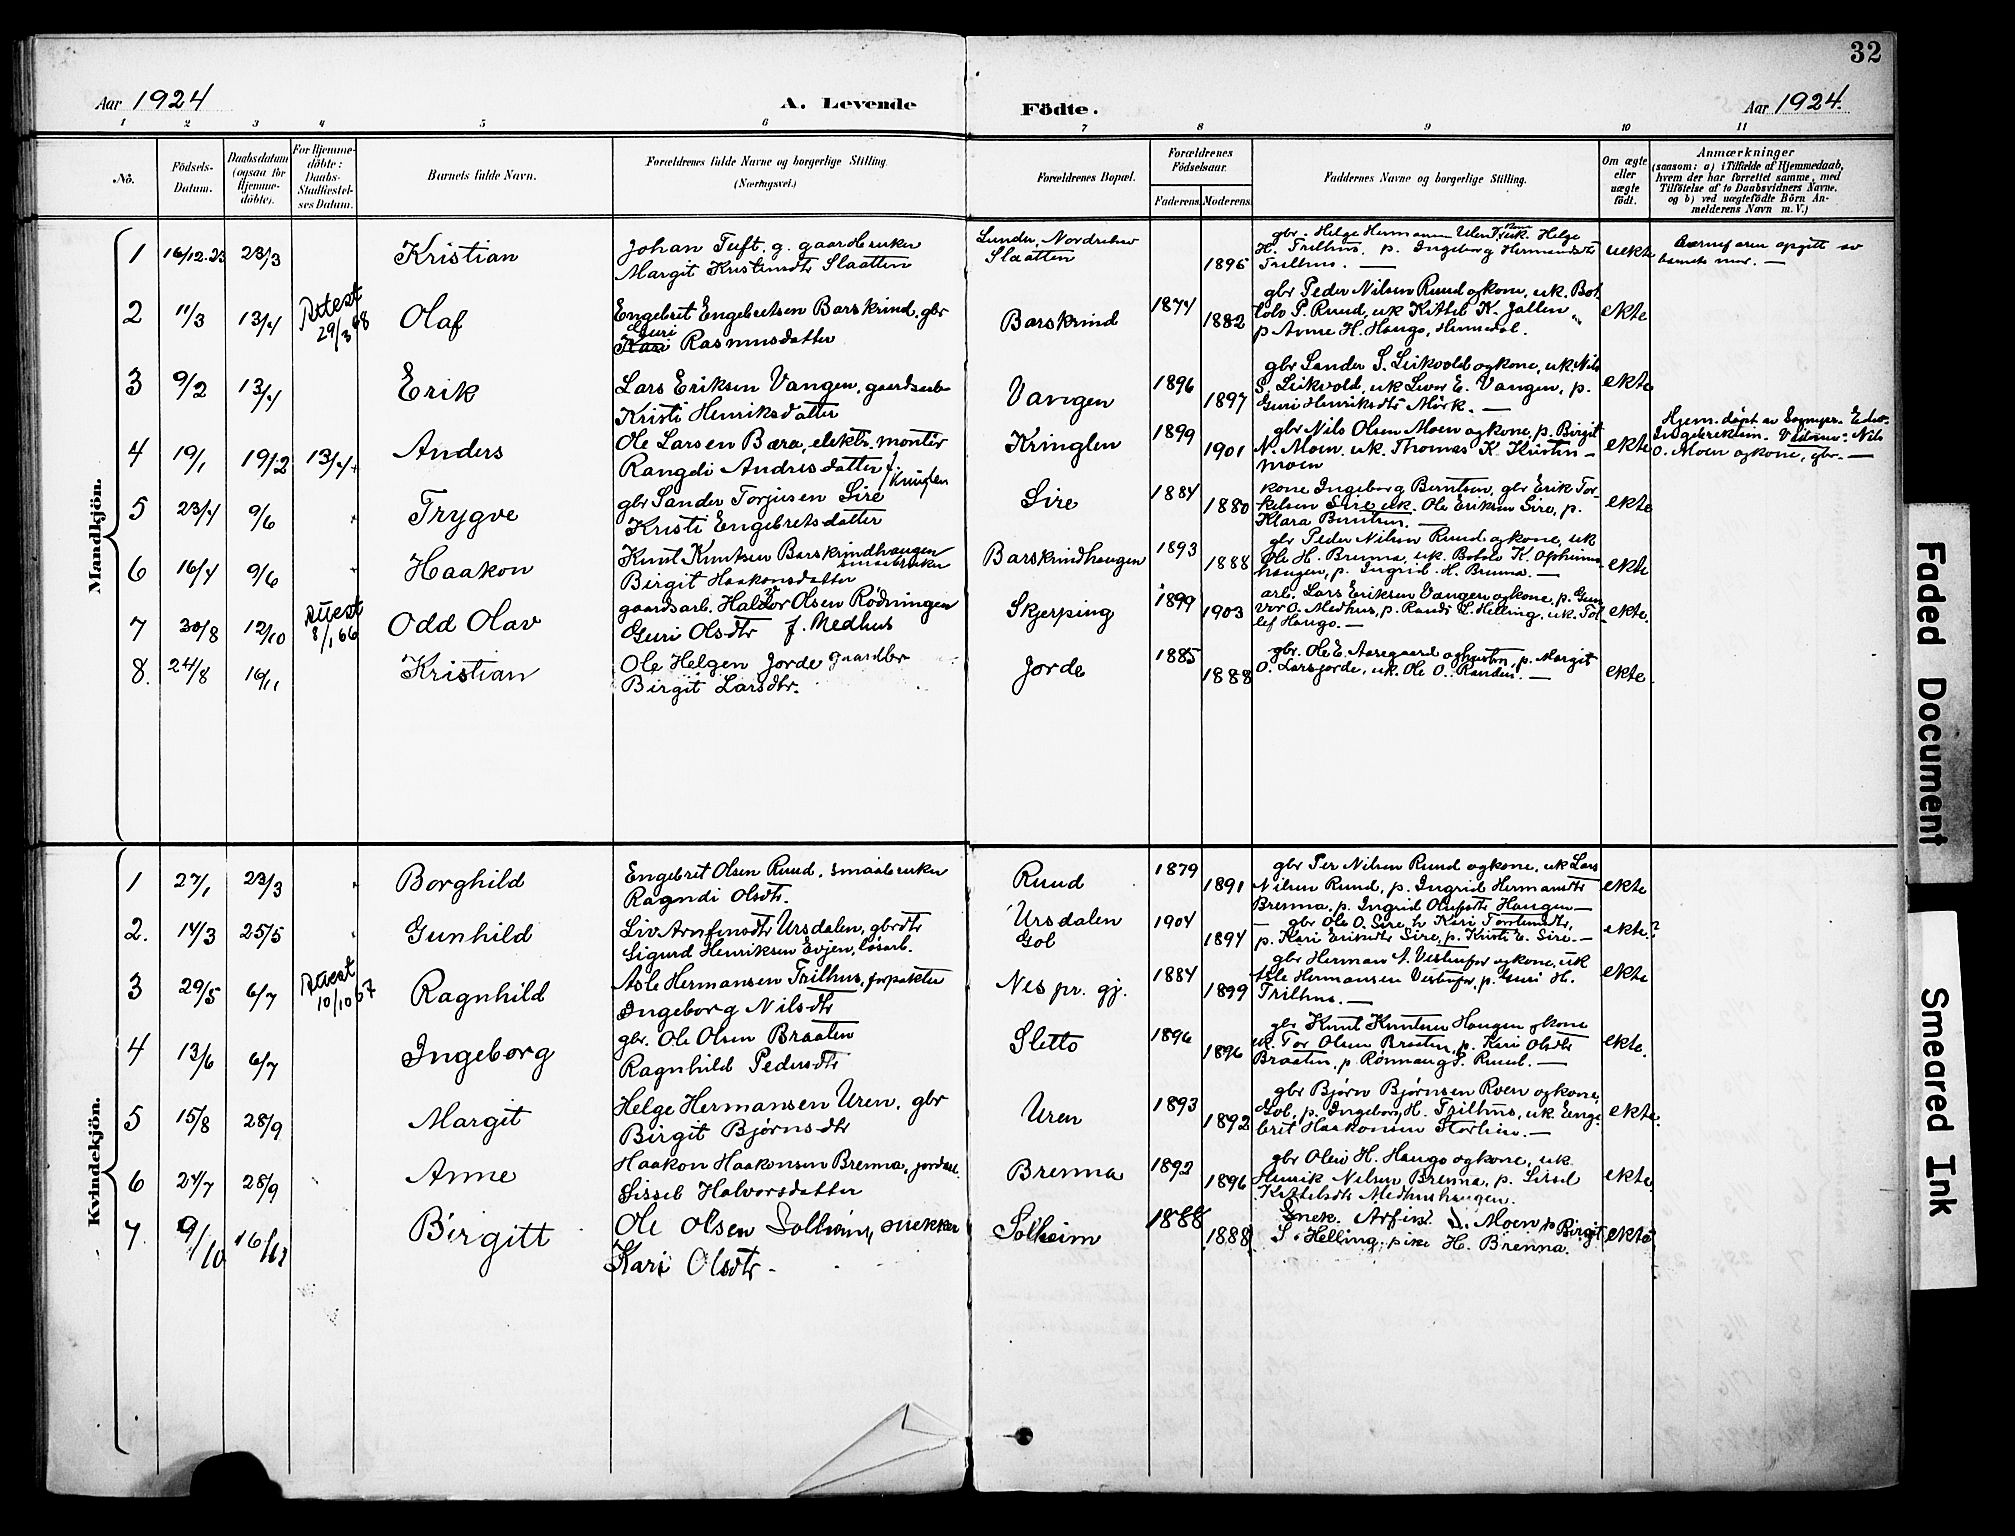 32
Aar 1924 A. Levende Födte. Aar 1924.
1 2 3 4 5 6 7 8 9 10 11
No.
Födsels-Datum.
Daabsdatum (ogsaa for Hjemme-døbte).
For Hjemme-døbte: Daabs-Stadfæstel-ses Datum.
Barnets fulde Navn.
Forældrenes fulde Navne og borgerlige Stilling. (Næringsvei.)
Forældrenes Bopæl.
Forældrenes Födselsaar.
Faderens Moderens
Faddernes Navne og borgerlige Stilling.
Om ægte eller uægte födt.
Anmærkninger
(saasom: a) i Tilfælde af Hjemmedaab, hvem der har forrettet samme, med Tilföielse af to Daabsvidners Navne, og b) ved uægtefödte Börn An-melderens Navn m. V.)
Mandkjön.
1 16/12.23 23/3 Kristian
Johan Tuft, g. gaardbruker
Margit Kristensdtr Slaatten
Lunder, Nordrehov
Slaatten
1896
gbr. Helge Hermansen Uren, uk. Helge
H. Trilhus, p. Ingeborg Hermansdtr
Trilhus. —
uekte
Barnefaren opgitt av
barnets mor. —
2 11/3 13/4 Attest 29/3 68 Olaf
Engebret Engebretsen Barskrind, gbr
Guri
Kari Rasmusdatter
Barskrind
1874 1882
gbr Peder Nilsen Ruud og kone, uk. Bot
tolv P. Ruud, uk Kittel K. Jallen
p Anne H. Haugo, Hemsedal.
ekte
3 9/2 13/4 Erik
Lars Eriksen Vangen, gaardsarb
Kristi Henriksdatter
Vangen
1896 1897
gbr Sander S. Leikvold og kone, uk. Nils
S. Leikvold, uk Levor E. Vangen, p.
Guri Henriksdtr Mörk. —
ekte
4 19/1 19/2 13/4 Anders
Ole Larsen Bæra, elektr. montör
Rangdi Andrisdatter f. Kringlen
Kringlen
1899 1901
gbr Nils Olsen Moen og kone, p. Birgit
N. Moen, uk. Thomas K. Kristen-
moen
ekte
Hjem. döpt av Sogнepr.
Vidner: Nils
O. Moen og kone, gbr. —
5 23/4 9/6 Trygve
gbr Sander Torjusen Sire
Kristi Engebretsdatter
Sire
1884 1880
kone Ingeborg Berntsen, gbr Erik Tor-
kelsen Sire uk. Ole Eriksen Sire, p.
Klara Berntsen. —
ekte
6 16/4 9/6 Haakon
Knut Knutsen Barskrindhaugen
smaabruker
Birgit Haakonsdatter
Barskrindhaugen
1893 1888
gbr Peder Nilsen Ruud og kone, uk
Ole H. Brenna, uk.
haugen, p. Ingrid H. Brenna. —
ekte
7 30/8 12/10 Attest 8/1 66 Odd Olav
gaardsarb. Haldor Olsen Rødningen
Guri Olsdtr f. Medhus
Skjerping
1899 1903
arb. Lars Eriksen Vangen og kone, p. Gun
vor O. Medhus, p. Randi L. Helling, uk. Tor
lef Haugo. —
ekte.
8. 24/8 16/11 Kristian
Ole Helgen Jorde gaardbr
Birgit Larsdtr.
Jorde
1885 1888
gbr. Ole E. Aasegaard og hustru, p. Margit
O. Larsjorde, uk. Ole O. Randen. —
ekte.
Kvindekjön.
1 27/1 23/3 Borghild
Engebret Olsen Ruud, smaabruker
Ragndi Olsdtr.
Ruud
1879 1891
gbr Per Nilsen Ruud og kone, uk Lars
Nilsen Ruud, p. Ingrid Hermansdtr
Brenna, p. Ingrid Olufsdtr Haugen —
ekte
2. 14/3 25/5 Gunhild
Liv Arnfinsdtr Ursdalen, gbrdtr
Sigurd Henriksen Evjen, løsarb.
Ursdalen
Gol
1904 1894
gbr Ole O. Sire, h Kari Torsteinsdtr,
p. Kari Eriksdtr Sire, p. Kristi E. Sire. —
ekte?
3 29/5 6/7 Attest 10/10 67 Ragnhild
Asle Hermansen Trilhus, forpakter
Ingeborg Nilsdtr
Nes pr. gj.
1884 1899
gbr Herman A. Vestenfor og kone, uk
Asle Hermansen Vestenfor, p. Guri H.
Trilhus. —
ekte
4 13/6 6/7 Ingeborg
gbr. Ole Olsen Braaten
Ragnhild Pedersdtr
Sletto
1896 1896
gbr Knut Knutsen Haugen og kone
uk. Tor Olsen Braaten, p. Kari Olsdtr
Braaten, p. Rønnaug P. Ruud. —
ekte.
5 15/8 28/9 Margit
Helge Hermansen Uren, gbr
Birgit Bjørnsdtr
Uren
1893 1892
gbr Bjørn Bjørnsen Roen og kone,
Gol, p. Ingeborg H. Trilhus, uk. Enge
bret Haakonsen Storlien. —
ekte.
6 24/7 28/9 Anne
Haakon Haakonsen Brenna, jordarb.
Sissel Halvorsdatter
Brenna
1892 1896
gbr Olav H. Haugo og kone, uk.
Henrik Nilsen Brenna, p. Sissel
Kittelsdtr Medhushaugen.
ekte.
7. 9/10 16/11 Birgitt
Ole Olsen Solheim, snekker
Kari Olsdtr -
Solheim
1888 1888
Snek. Arfin S. Moen, p Birgit
S. Helling, pike H. Brenna.
ekte
Faded Document
Smeared Ink